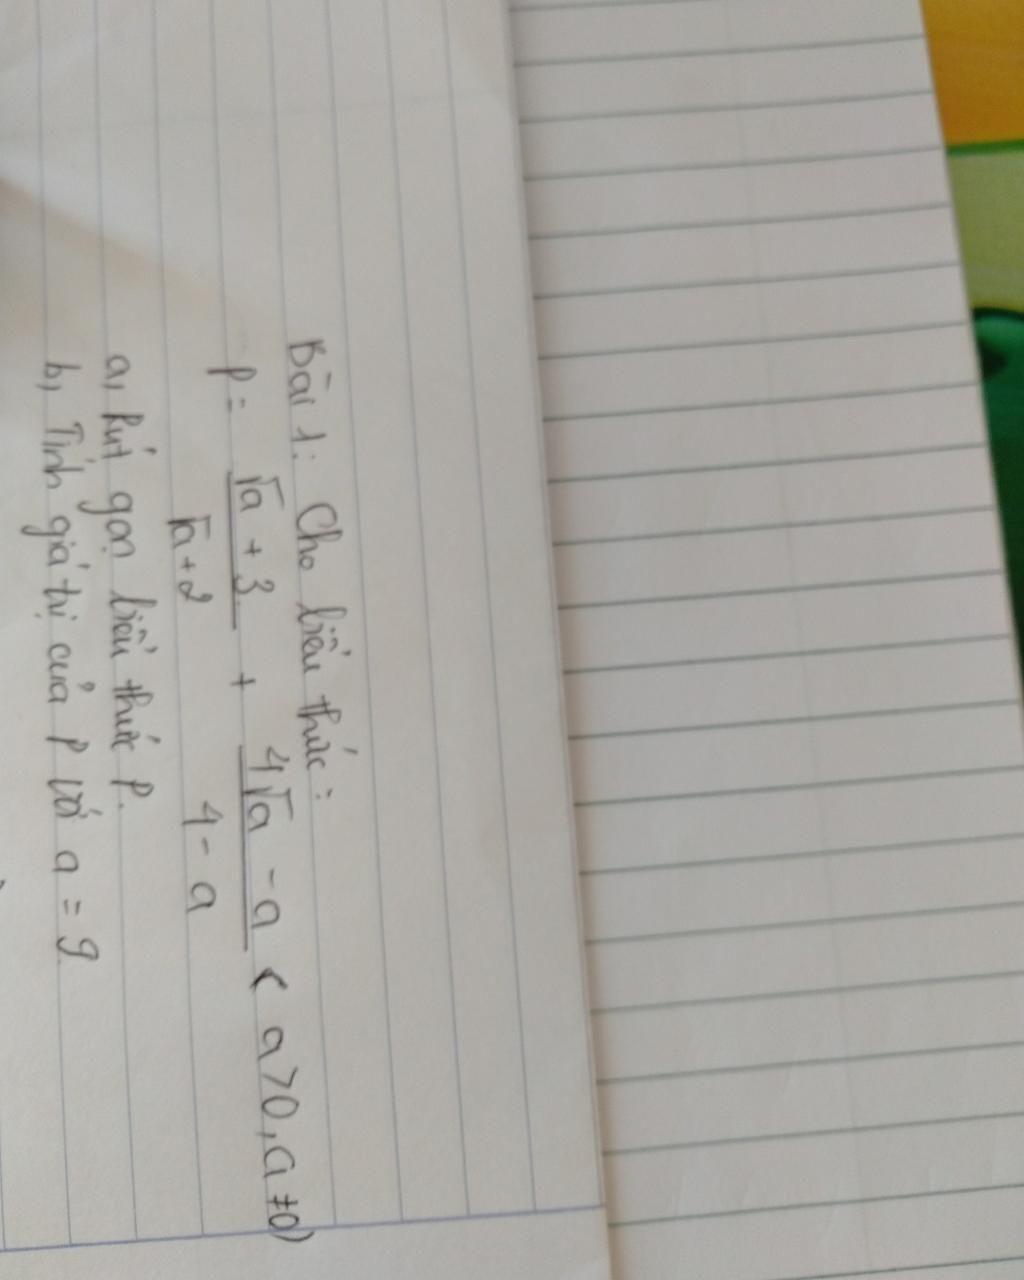 Bài 1: Cho biểu thức:
P = √a + 3 / √a + 2 + 4√a - a / 4 - a ( a > 0, a ≠ 0)
a, Rút gọn biểu thức P.
b, Tính giá trị của P với a = 9